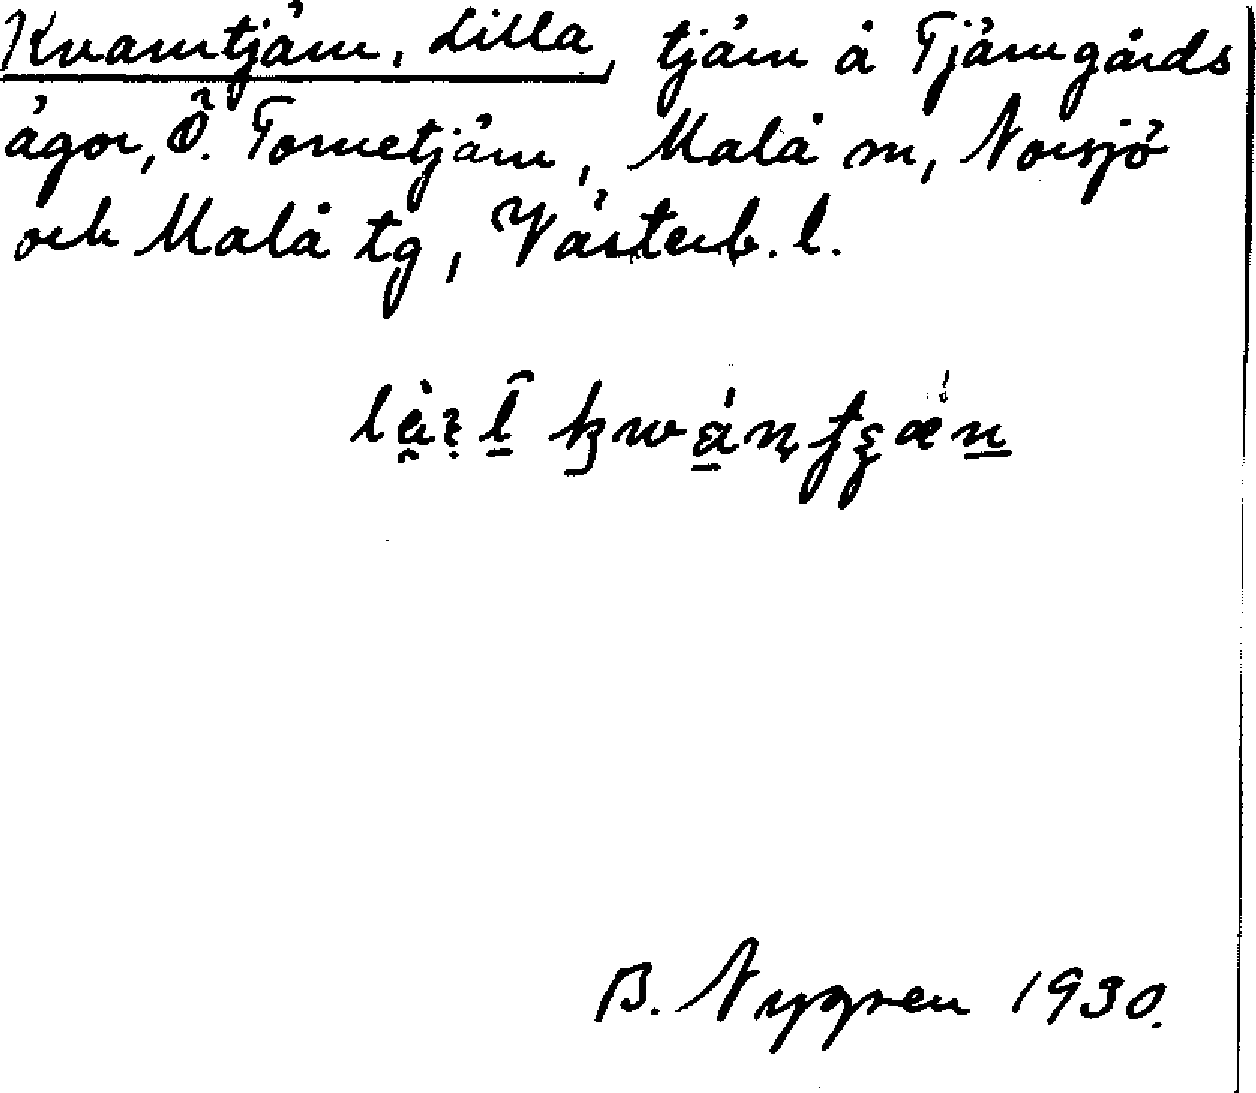 Kvarntjärn, Lilla, tjärn å Tjärngårds
ägor, Ö. Tornetjärn, Malå sn, Norsjö
och Malå tg, Västerb. l.
B. Nygren 1930.